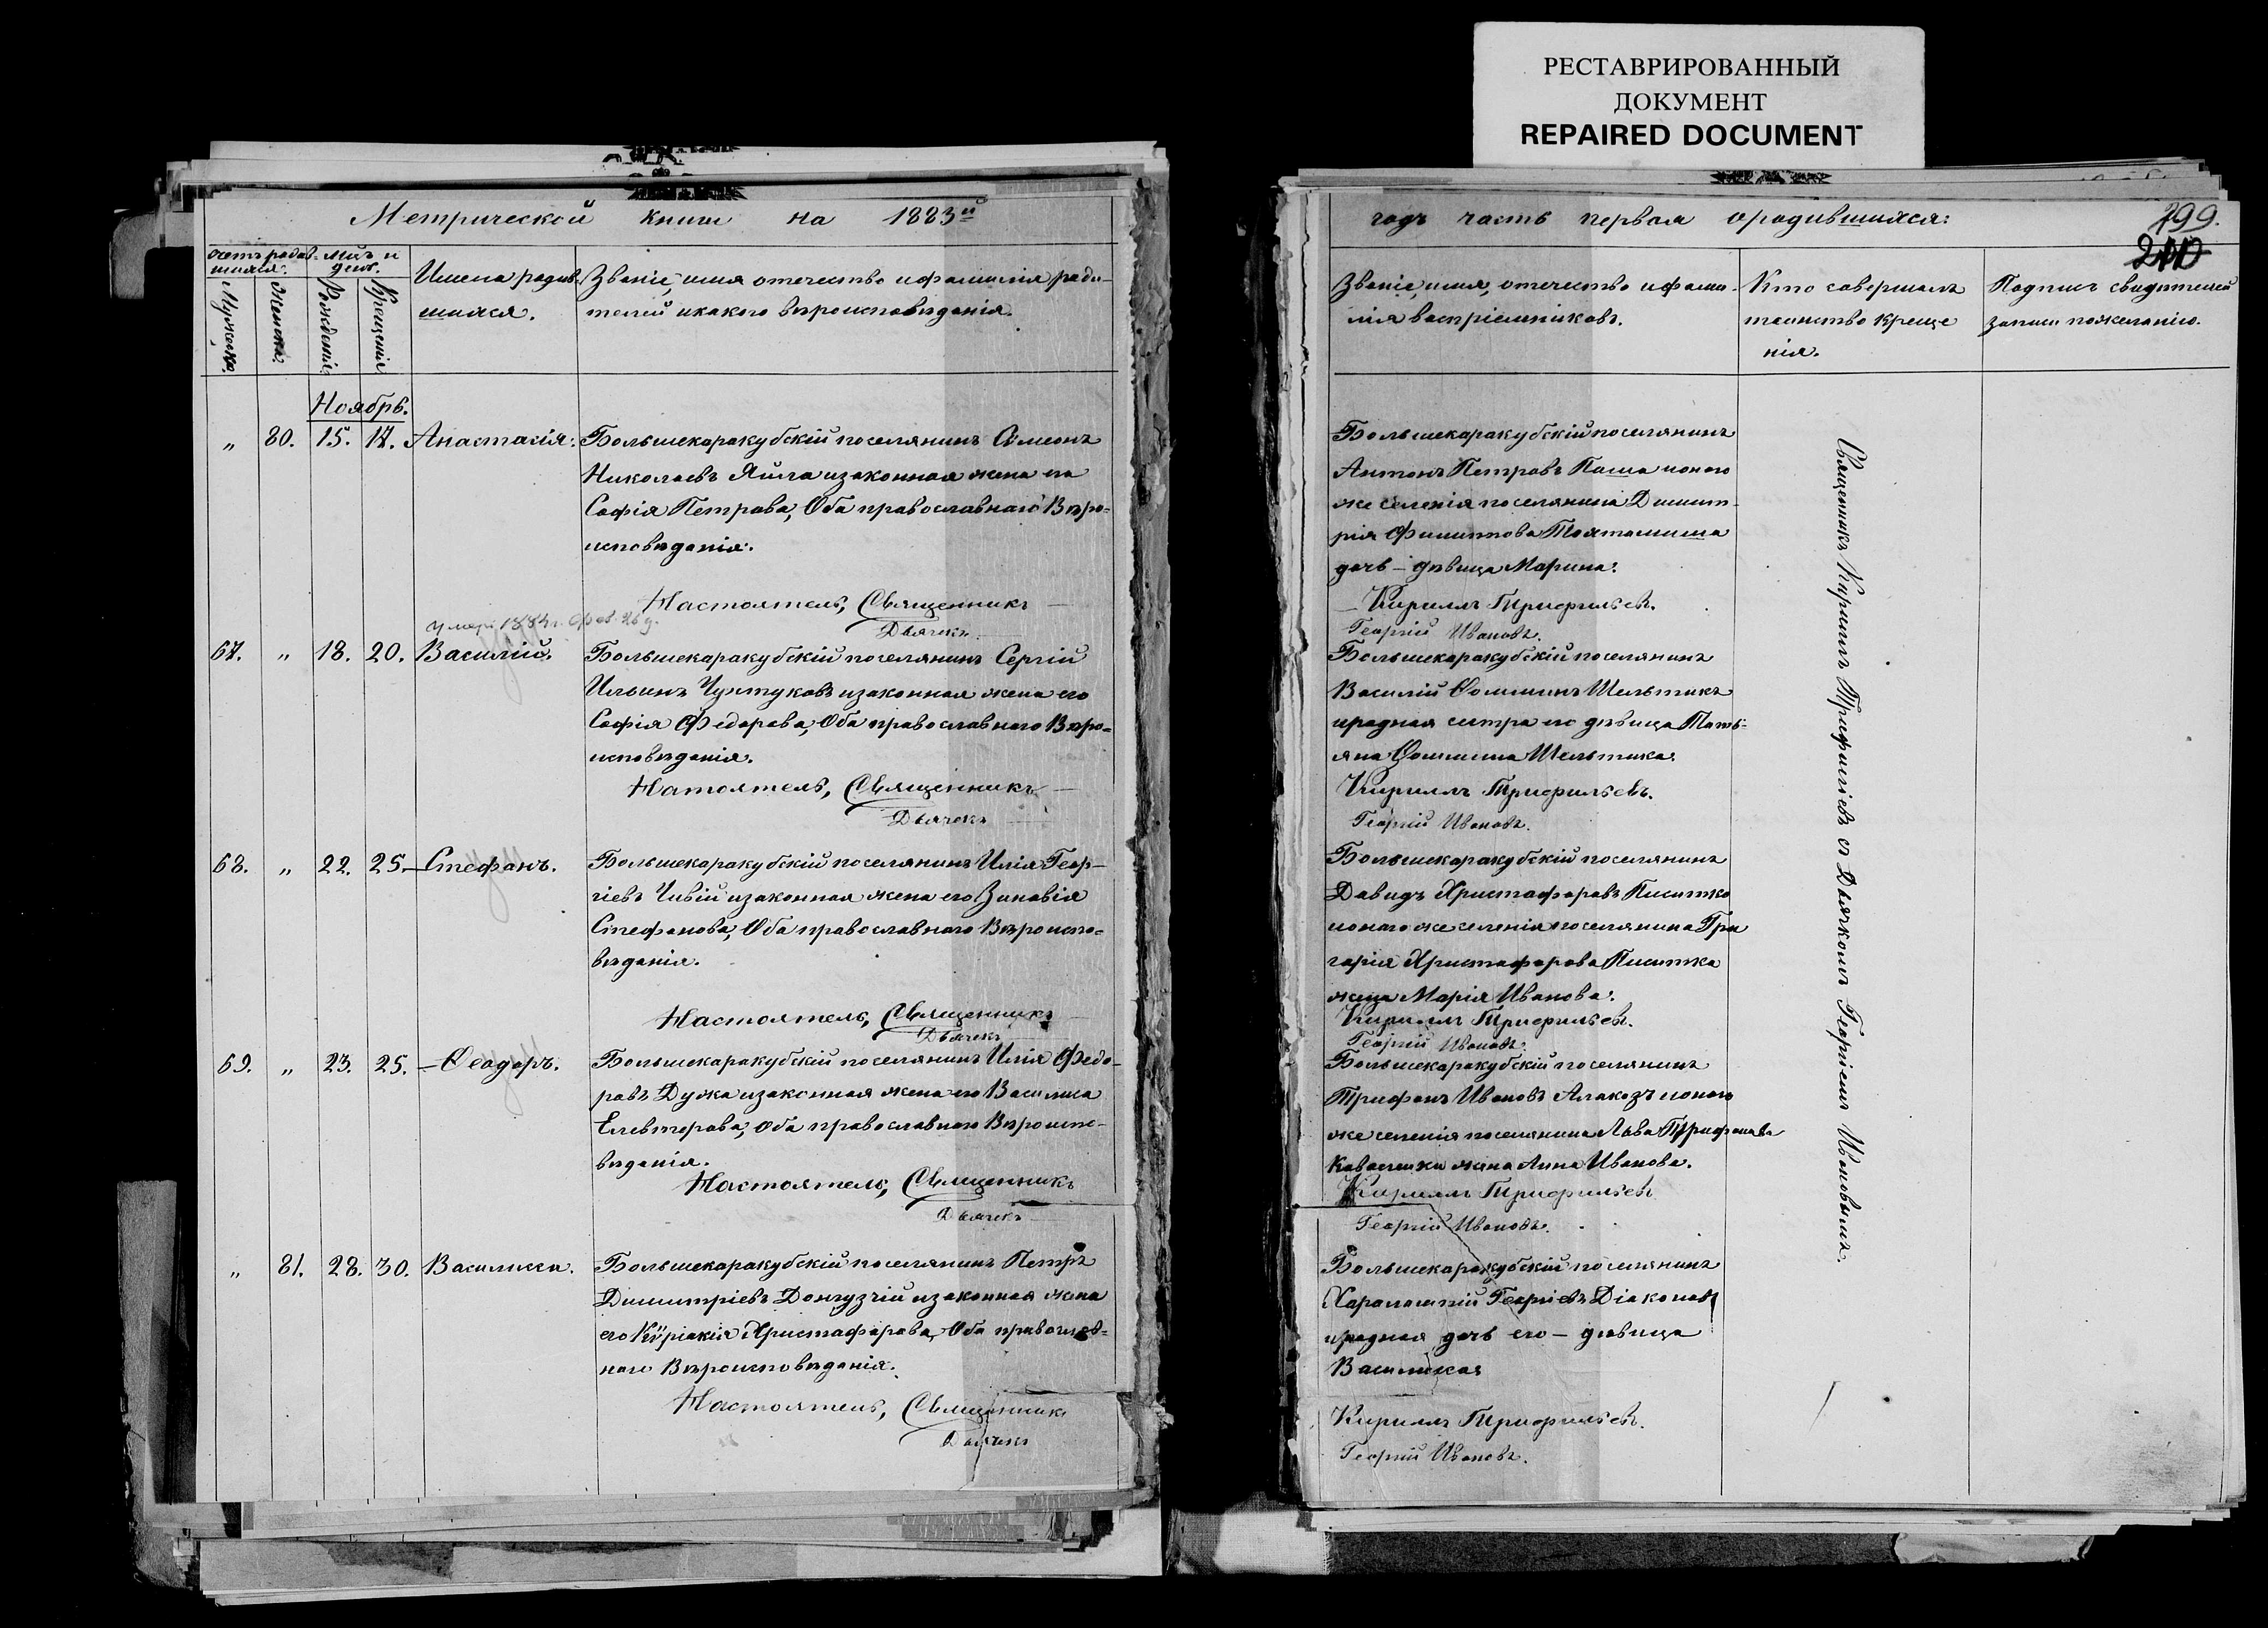 РЕСТАВРИРОВАННЫЙ
ДОКУМЕНТ
REPAIRED DOCUMENT
Метрической книги на 1883й
Счетъ родив-
шихся.
Мѣс. и
день.
Мужеска.
Женска.
Рожденія
Крещенія
Имена родив-
шихся.
Званіе, имя отечество и фамилія роди-
телей и какого вѣроисповѣданія.
Ноябрь.
„ 80. 15. 17. Анастасія.
Большекаракубскій поселянинъ Симеонъ
Николаевъ Яйла и законная жена его
Софія Петрова, Оба православнаго Вѣро=
исповѣданія.
Настоятель, Священникъ
Дьячекъ
умеръ 1884 г. Фев. 26 д.
67. „ 18. 20. Василій.
Большекаракубскій поселянинъ Сергій
Ильинъ Чунтуковъ и законная жена его
Софія Федорова, Оба православнаго Вѣро=
исповѣданія.
Натоятель, Священникъ
Дьячекъ
68. „ 22. 25. Стефанъ.
Большекаракубскій поселянинъ Илія Геор-
гіевъ Чивій и законная жена его Зиновія
Стефанова, Оба православнаго Вѣроиспо=
вѣданія.
Настоятель, Священникъ
Дьячекъ
69. „ 23. 25. Ѳеодоръ.
Большекаракубскій поселянинъ Илія Федо-
ровъ Дужа и законная жена его Василиса
Елевтерова, Оба православнаго Вѣроиспо-
вѣданія.
Настоятель, Священникъ
Дьячекъ
„ 81. 28. 30. Василисса.
Большекаракубскій поселянинъ Петръ
Димитріевъ Донгузгій и законная жена
его Кѵріакія Христафорова, Оба православ=
наго Вѣроисповѣданія.
Настоятель, Священникъ
Дьячекъ
годъ часть первая о родившихся:
199.
Званіе, имя, отечество и фами-
лія воспріемниковъ.
Кто совершалъ
таинство креще
нія.
Подпись свидѣтелей
записи по желанію.
Большекаракубскій поселянинъ
Антонъ Петровъ Паша и онаго
же селенія поселянина Димит-
рія Филиппова Тохтамиша
дочь - дѣвица Марина.
Кирилъ Трифильевъ.
Георгій Ивановъ.
Большекаракубскій поселянинъ
Василій Ѳоминъ Шельтикъ
и родная сестра его дѣвица Тать=
яна Ѳомина Шельтика.
Кирилъ Трифильевъ.
Георгій Ивановъ.
Большекаракубскій поселянинъ
Давидъ Христафоровъ Пичитко
и онаго же селенія поселянина Гри
горія Христафорова Пичитка
жена Марія Иванова.
Кирилъ Трифильевъ.
Георгій Ивановъ.
Большекаракубскій поселянинъ
Трифонъ Ивановъ Алакозъ и онаго
же селенія поселянина Льва Трифонова
жена Анна Иванова.
Кирилъ Трифильевъ
Георгій Ивановъ.
Большекаракубскій поселянинъ
Харалампій Георгіевъ Діаконов
и родная дочь его - дѣвица
Василисса
Кирилъ Трифильевъ.
Георгій Ивановъ.
Священникъ Кирилъ Трифиліевъ съ Дьячкомъ Георгіемъ Ивановымъ.